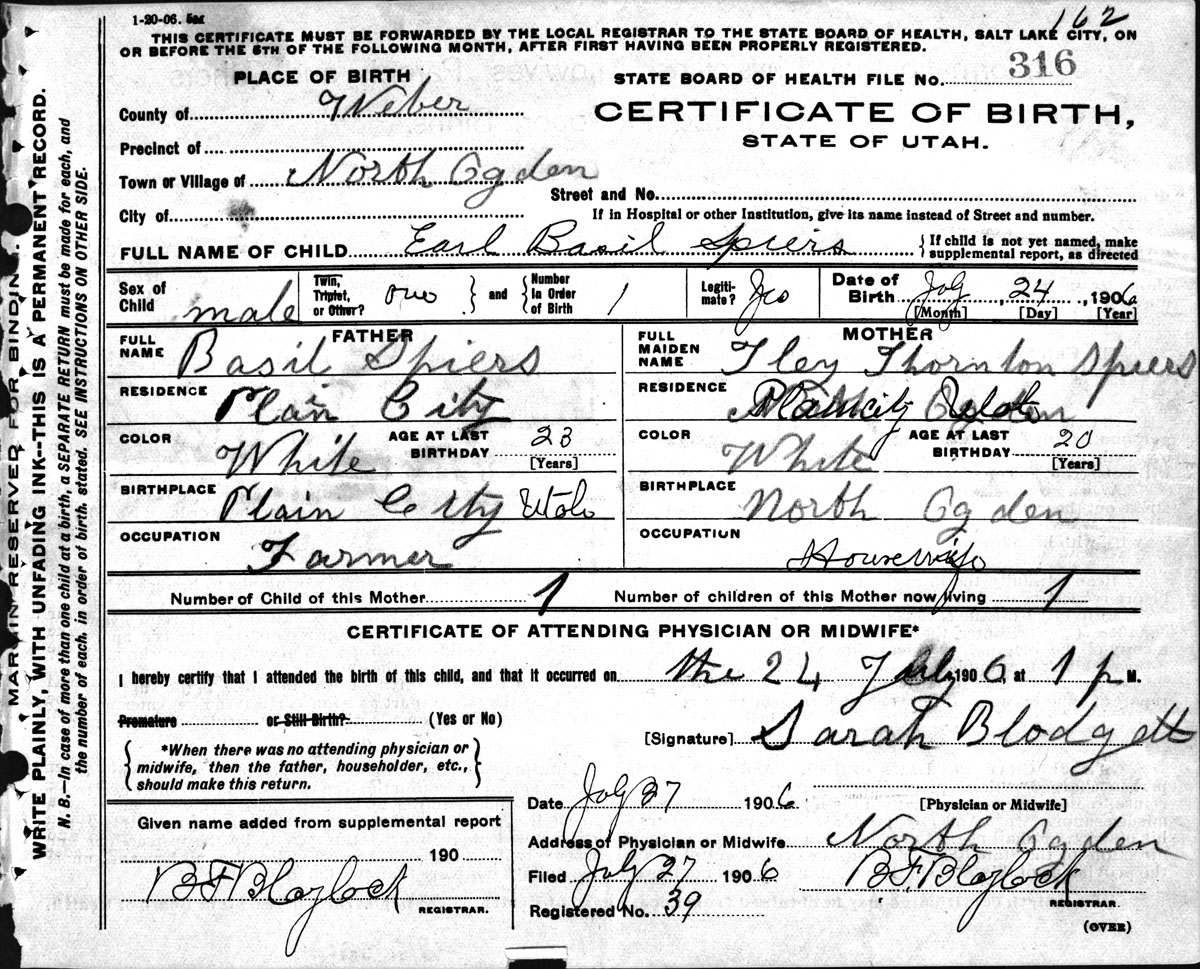 1-20-06.
162
THIS CERTIFICATE MUST BE FORWARDED BY THE LOCAL REGISTRAR TO THE STATE BOARD OF HEALTH, SALT LAKE CITY, ON
OR BEFORE THE 5TH OF THE FOLLOWING MONTH, AFTER FIRST HAVING BEEN PROPERLY REGISTERED.
PLACE OF BIRTH
STATE BOARD OF HEALTH FILE No. 316
County of Weber
CERTIFICATE OF BIRTH,
STATE OF UTAH.
Precinct of
Town or Village of North Ogden
Street and No.
City of
If in Hospital or other Institution, give its name instead of Street and number.
FULL NAME OF CHILD Earl Basil Spiers
{ If child is not yet named, make
supplemental report, as directed
Sex of Child male
Twin, Triplet, or Other? one } and { Number in Order of Birth 1
Legiti-mate? Yes
Date of Birth July, 24, 1906
[Month] [Day] [Year]
FATHER
FULL NAME Basil Spiers
RESIDENCE Plain City
COLOR White
AGE AT LAST BIRTHDAY 23
[Years]
BIRTHPLACE Plain City Utah
OCCUPATION Farmer
MOTHER
FULL MAIDEN NAME Iley Thornton Spiers
RESIDENCE Plain City
COLOR White
AGE AT LAST BIRTHDAY 20
[Years]
BIRTHPLACE North Ogden
OCCUPATION Housewife
Number of Child of this Mother 1
Number of children of this Mother now living 1
CERTIFICATE OF ATTENDING PHYSICIAN OR MIDWIFE*
I hereby certify that I attended the birth of this child, and that it occurred on the 24 July 1906, at 1 p M.
Premature or Still Birth? (Yes or No)
[Signature] Sarah Blodgett
{ *When there was no attending physician or
midwife, then the father, householder, etc.,
should make this return. }
Date July 27 1906
[Physician or Midwife]
Given name added from supplemental report
190
Address of Physician or Midwife North Ogden
BF Blaylock
REGISTRAR.
Filed July 27 1906
B.F. Blaylock
REGISTRAR.
Registered No. 39
(OVER)
MARGIN RESERVED FOR BINDING.
WRITE PLAINLY, WITH UNFADING INK--THIS IS A PERMANENT RECORD.
N. B.—In case of more than one child at a birth, a SEPARATE RETURN must be made for each, and
the number of each, in order of birth, stated. SEE INSTRUCTIONS ON OTHER SIDE.